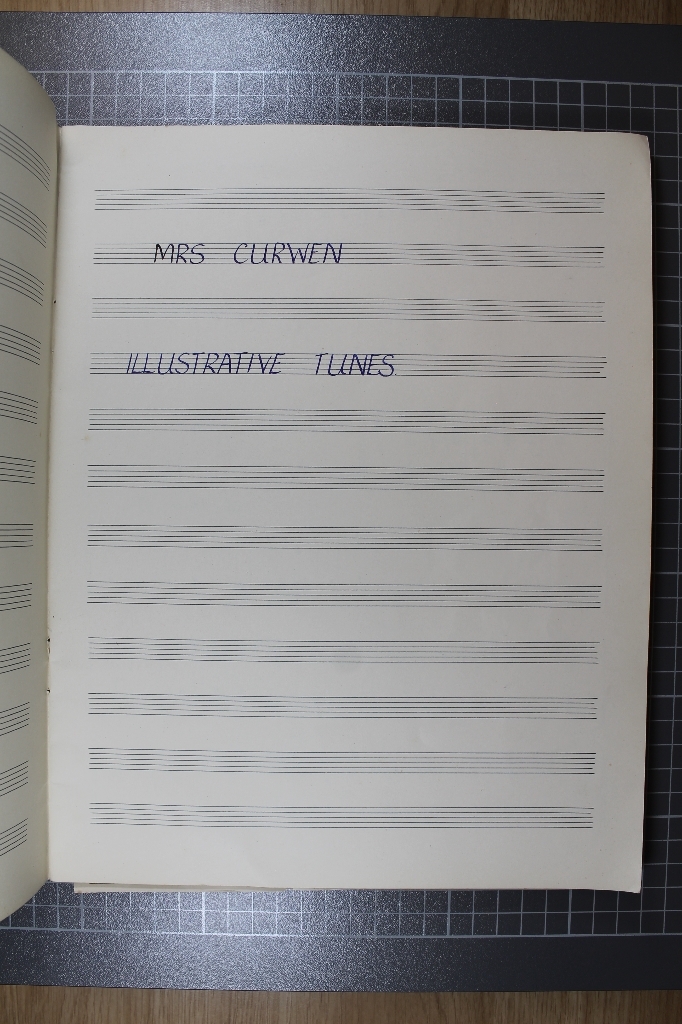 MRS CURWEN
ILLUSTRATIVE TUNES